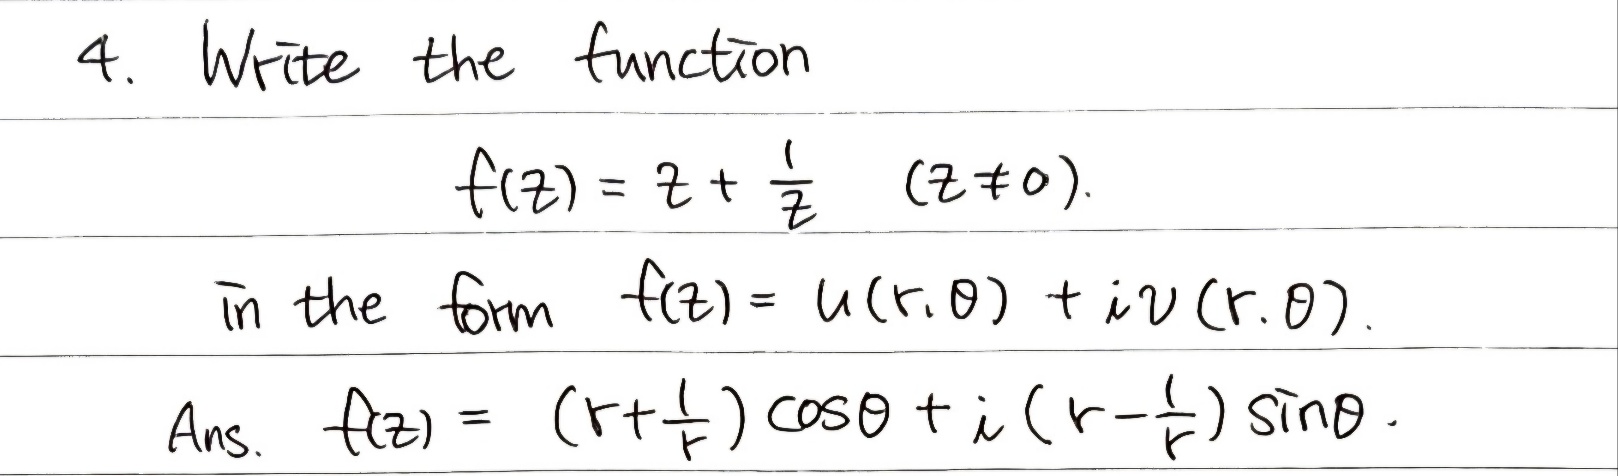 4. Write the function
f(z) = z + 1/z (z ≠ 0).
in the form f(z) = u(r.θ) + iv(r.θ).
Ans. f(z) = (r + 1/r) cosθ + i(r - 1/r) sinθ.